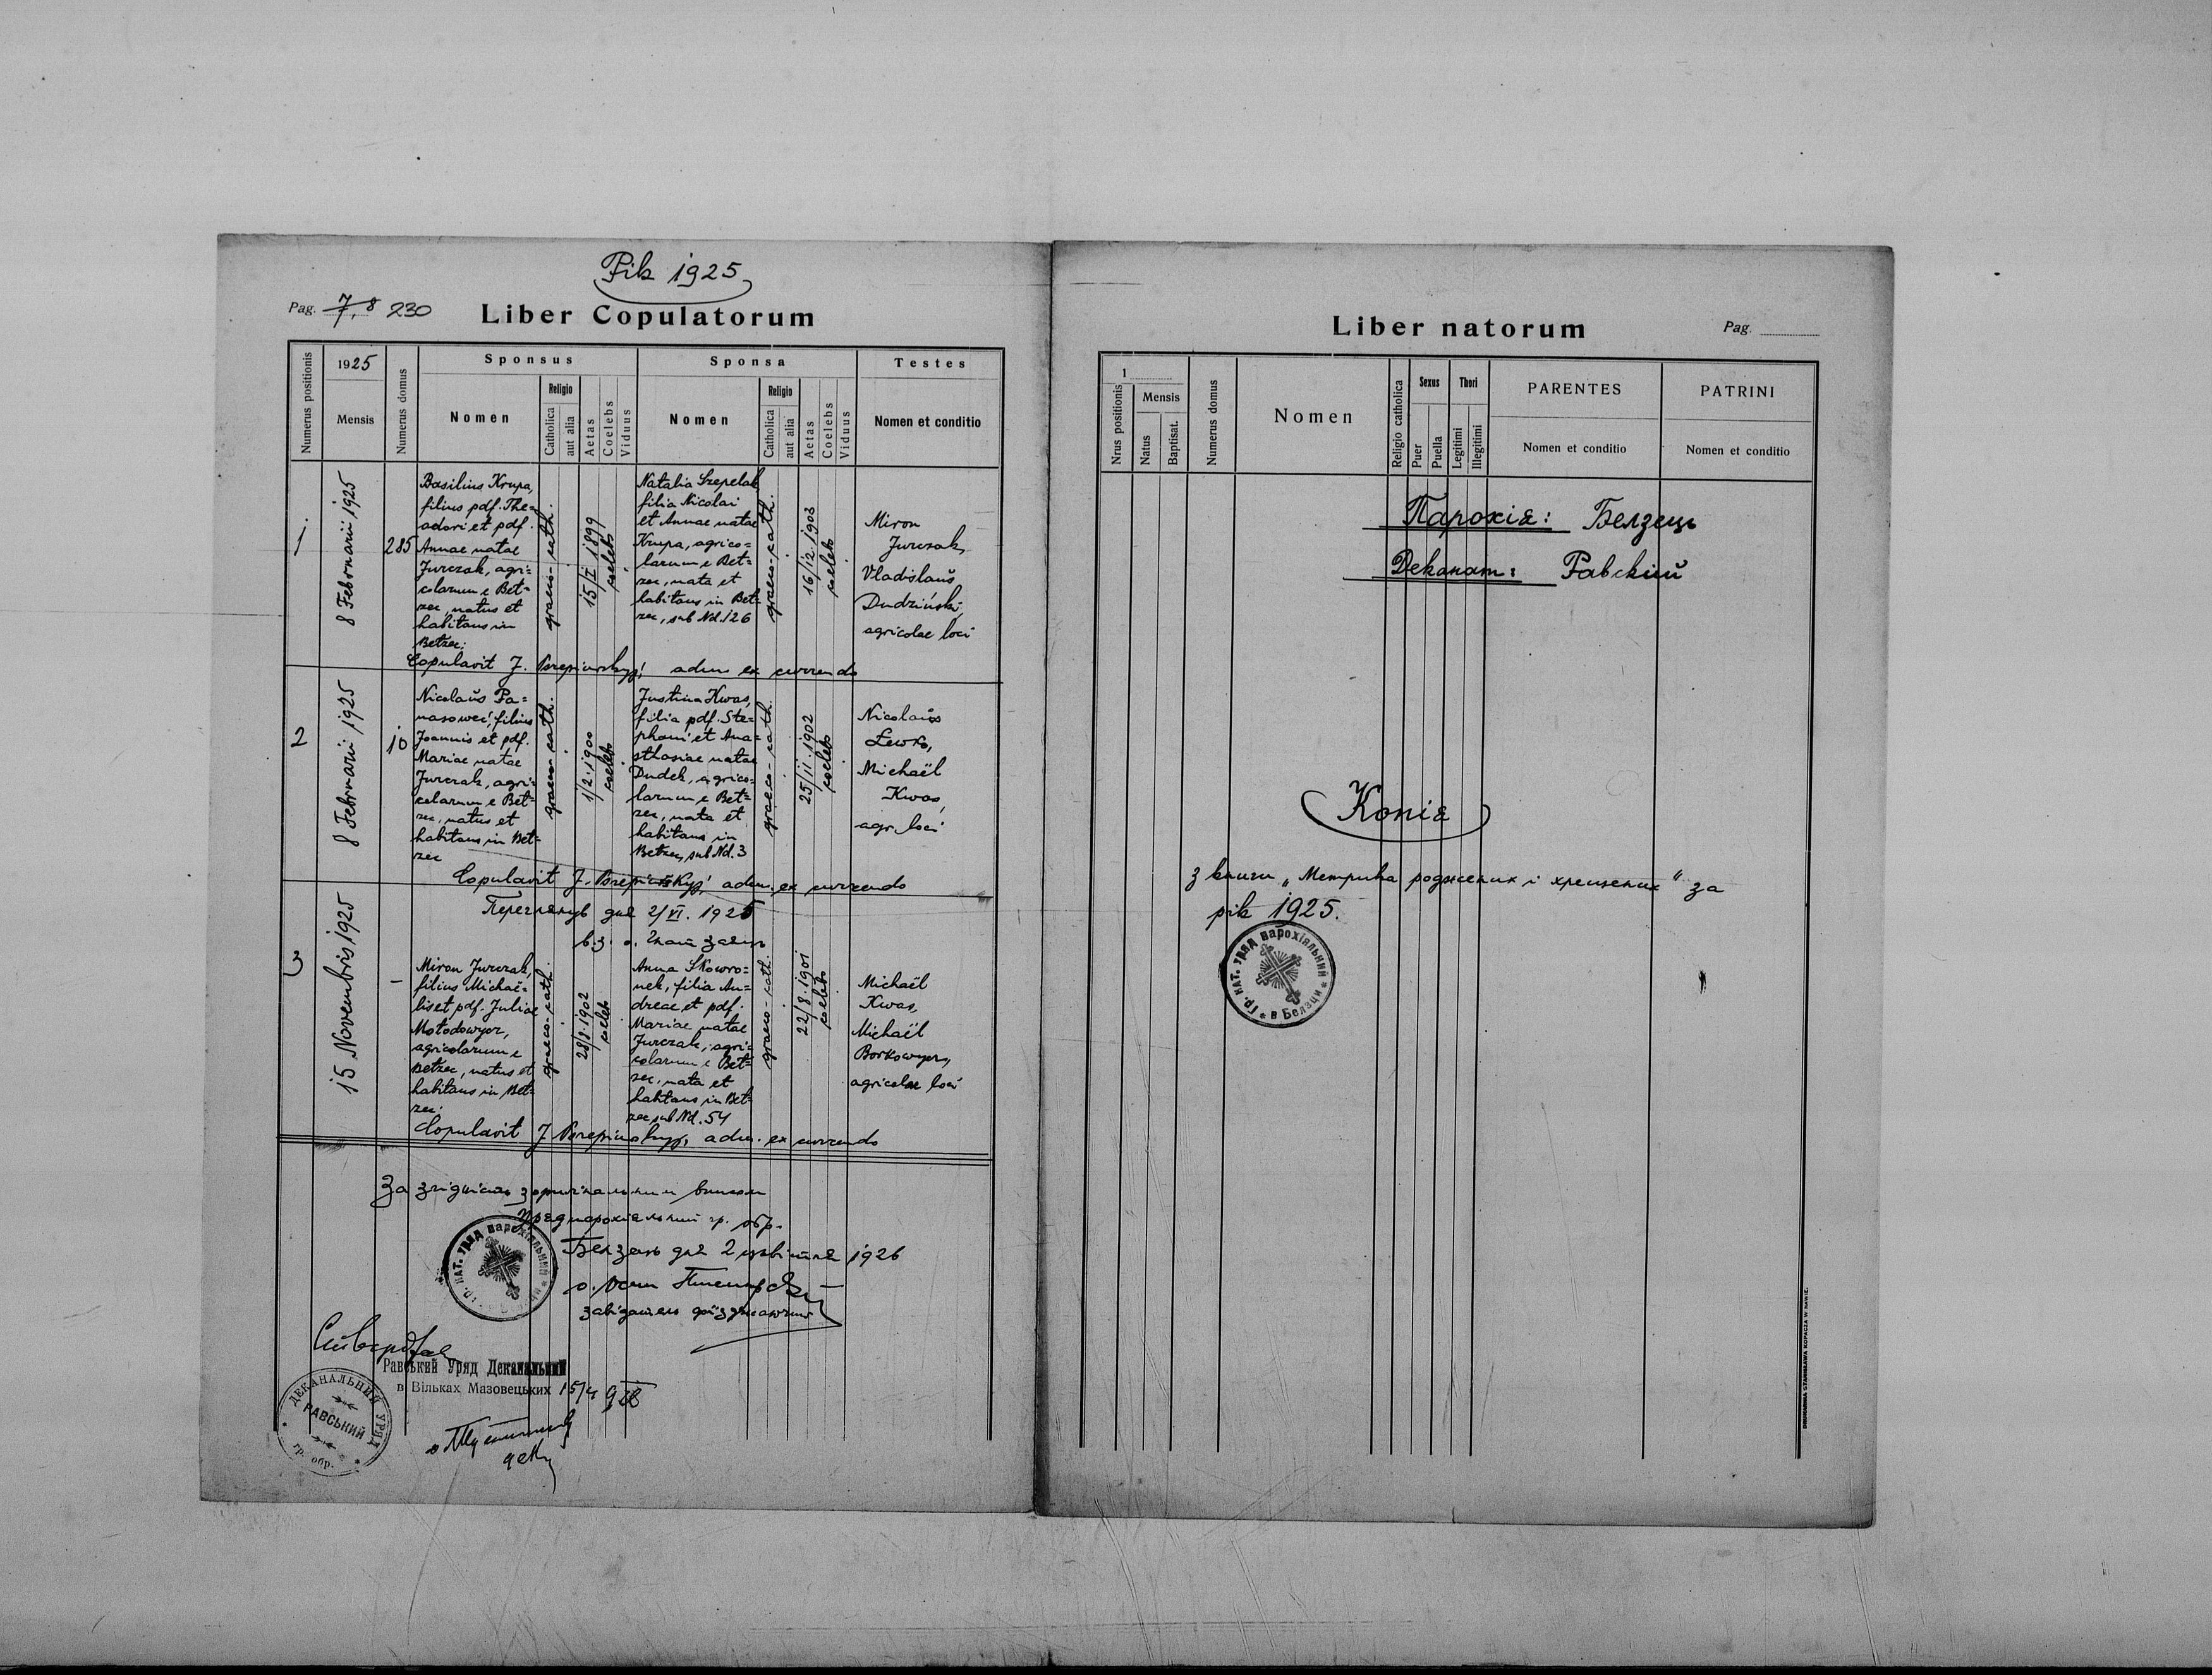 Рік 1925
Pag. 7, 8 230
Liber Copulatorum
Numerus positionis
1925
Mensis
Numerus domus
Sponsus
Nomen
Religio
Catholica
aut alia
Aetas
Coelebs
Viduus
Sponsa
Nomen
Religio
Catholica
aut alia
Aetas
Coelebs
Viduus
Testes
Nomen et conditio
1
8 Februarii 1925
285
Basilius Krupa,
filius pdf. The=
odori et pdf.
Annae natae
Jurczak, agri=
colarum e Bełz=
zec, natus et
habitans in
Bełzec;
graeco-cath.
15/I 1899
coelebs
Natalia Szepelak
filia Nicolai
et Annae natae
Krupa, agrico=
larum e Beł=
zec, nata et
habitans in Beł=
zec, sub Nd. 126
graeco-cath.
16/12 1903
coelebs
Miron
Jurczak,
Vladislaus
Dudziński,
agricolae loci
Copulavit J. adm ex currendo
2
8 Februarii 1925
10
Nicolaus Pa=
nasoweć, filius
Joannis et pdf.
Mariae natae
Jurczak, agri=
colarum e Beł=
zec, natus et
habitans in Beł=
zec
graeco-cath.
1/2. 1900
coelebs
Justina Kwas,
filia pdf. Ste=
phani et Ana=
sthasiae natae
Dudek, agrico=
larum e Beł=
zec, nata et
habitans in
Bełzec, sub Nd. 3
graeco-cath.
25/11. 1902
coelebs
Nicolaus
Lewko,
Michaël
Kwas,
agr. loci
Copulavit J. adm. ex currendo
Переглянув дня 2/VI. 1925
в.з. о.
3
15 Novembris 1925
–
Miron Jurczak,
filius Michaë=
lis et pdf. Juliae
Mołodowycz,
agricolarum e
Bełzec, natus et
habitans in Beł=
zec.
graeco-cath.
28/8. 1902
coelebs
Anna Skowro=
nek, filia An=
dreae et pdf.
Mariae natae
Jurczak, agri=
colarum e Beł=
zec, nata et
habitans in Beł=
zec sub Nd. 54
graeco-cath.
22/8. 1901
coelebs
Michaël
Kwas,
Michaël
Borkowycz,
agricolae loci
Copulavit J. adm. ex currendo
За згідність з оригінальним
Уряд парохіяльний гр. обр.
Белзець дня 2 цвітня 1926
завідатель
ГР. КАТ. УРЯД ПАРОХІЯЛЬНИЙ
Равський Уряд Деканальний
в Вільках Мазовецьких 15/4 926
ДЕКАНАЛЬНИЙ УРЯД
РАВСЬКИЙ
гр. обр.
Liber natorum
Pag.
Nrus positionis
1
Mensis
Natus
Baptisat.
Numerus domus
Nomen
Religio catholica
Sexus
Puer
Puella
Thori
Legitimi
Illegitimi
PARENTES
Nomen et conditio
PATRINI
Nomen et conditio
Парохія: Белзець
Деканат: Равский
Копія
з книги „Метрика роджених і хрещених“ за
рік 1925.
ГР. КАТ. УРЯД ПАРОХІЯЛЬНИЙ
в Белзци
DRUKARNIA STANISŁAWA KOPACZA W RAWIE.